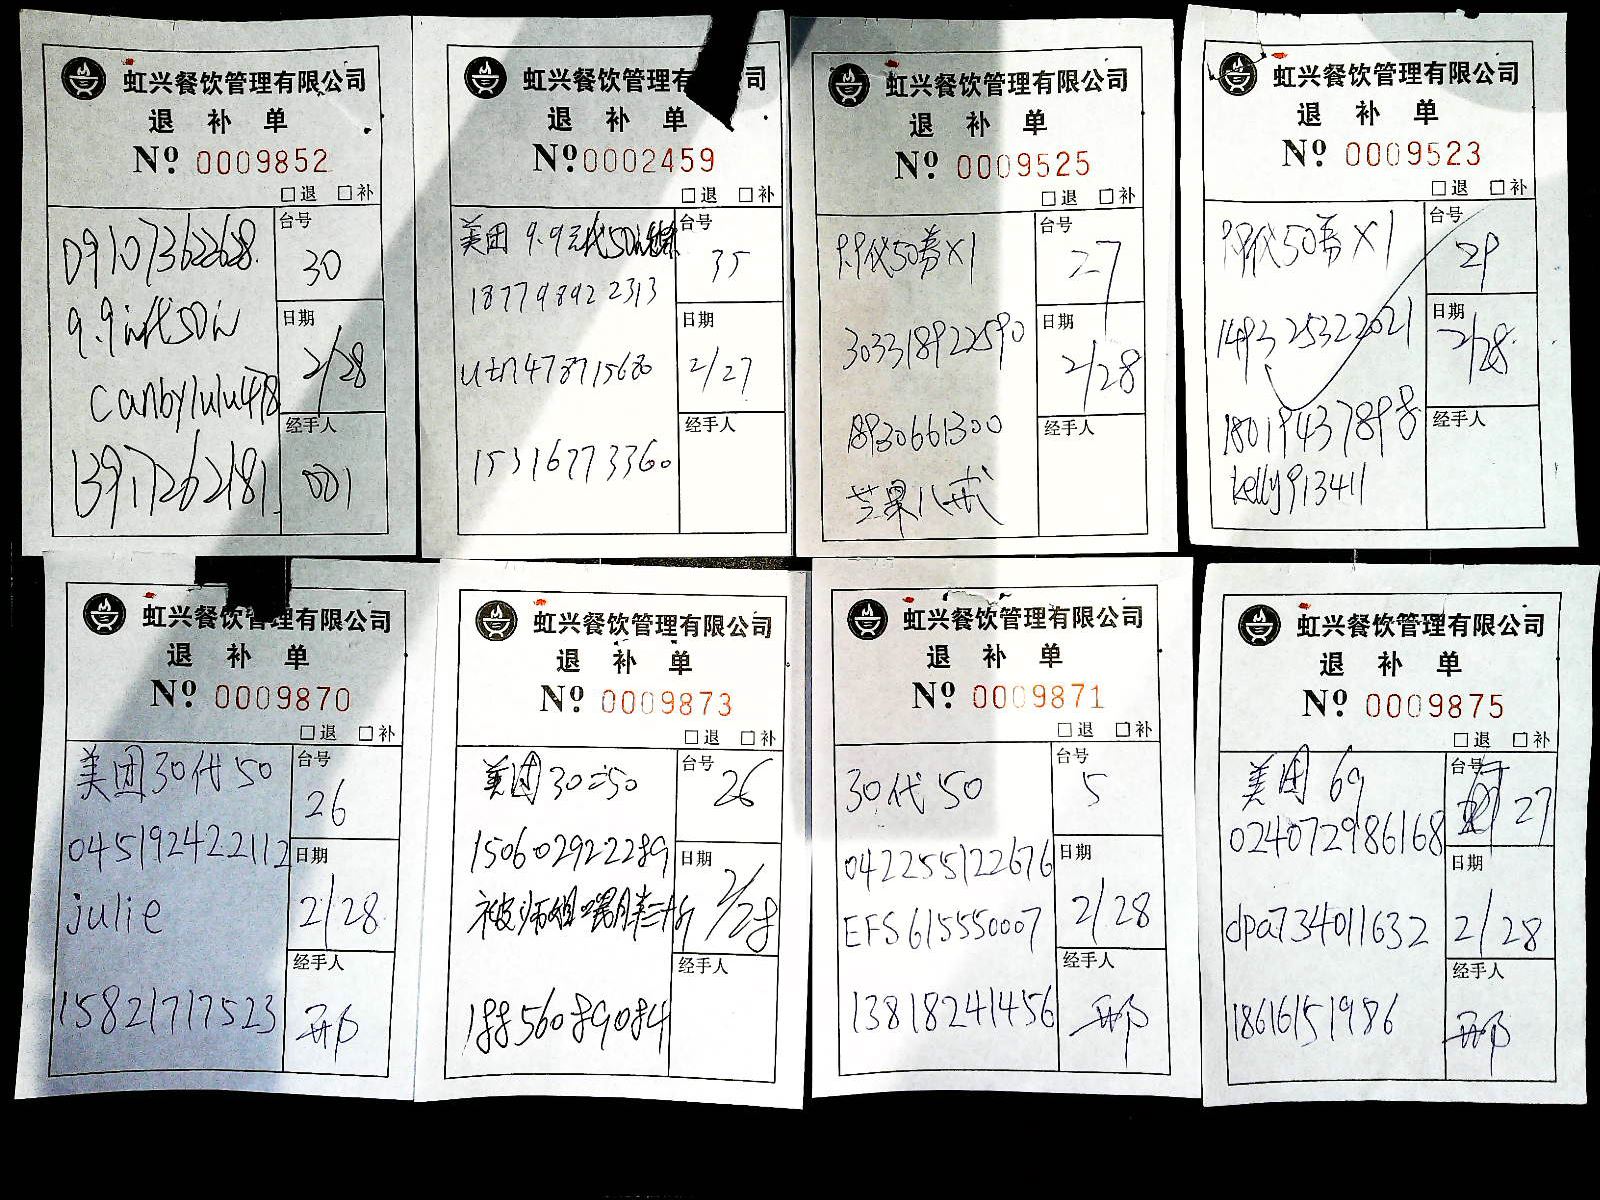 虹兴餐饮管理有限公司
退 补 单
Nº 0009852
□退 □补
091073622628
台号
30
9.9元代50元
日期
2/28
canbylulu478
经手人
13917262181
001
虹兴餐饮管理有限公司
退 补 单
Nº 0002459
□退 □补
美团 9.9元代50元
台号
35
187798922313
日期
2/27
utn478715680
经手人
15316773360
虹兴餐饮管理有限公司
退 补 单
Nº 0009525
□退 □补
9.9代50券×1
台号
27
303318922590
日期
2/28
18930661300
经手人
芒果八戒
虹兴餐饮管理有限公司
退 补 单
Nº 0009523
□退 □补
9.9代50券×1
台号
29
149325322021
日期
2/28
18019437898
经手人
kelly913411
虹兴餐饮管理有限公司
退 补 单
Nº 0009870
□退 □补
美团30代50
台号
26
045192422112
日期
2/28
julie
经手人
15821717523
邢
虹兴餐饮管理有限公司
退 补 单
Nº 0009873
□退 □补
美团30=50
台号
26
150602922289
日期
2/28
被师姐喂胖三十斤
经手人
18856089084
虹兴餐饮管理有限公司
退 补 单
Nº 0009871
□退 □补
30代50
台号
5
042255122676
日期
2/28
EFS615550007
经手人
13818241456
邢
虹兴餐饮管理有限公司
退 补 单
Nº 0009875
□退 □补
美团 69
台号
27
024072986168
日期
2/28
dpa734011632
经手人
18616151986
邢